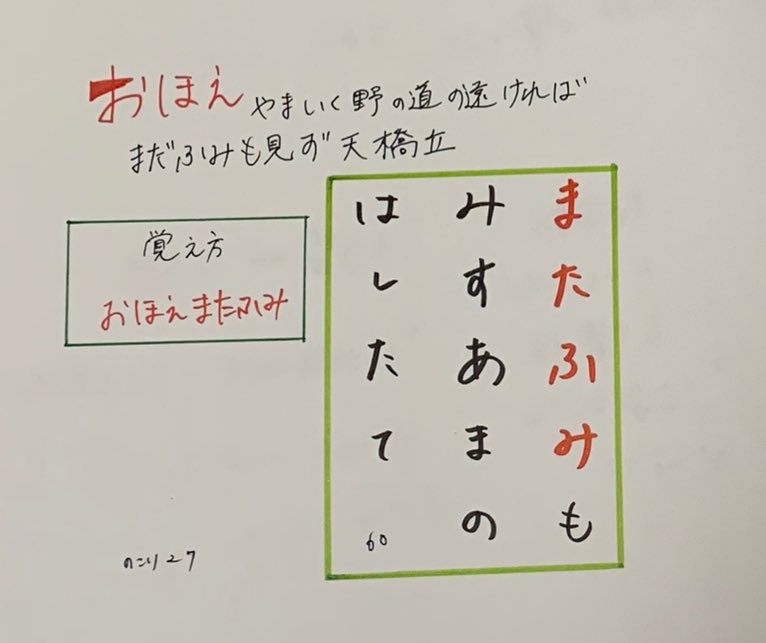 おほえやまいく野の道の遠ければ
まだふみも見ず天橋立
覚え方
おほえまたふみ
またふみも
みすあまの
はしたて
60
のこり27